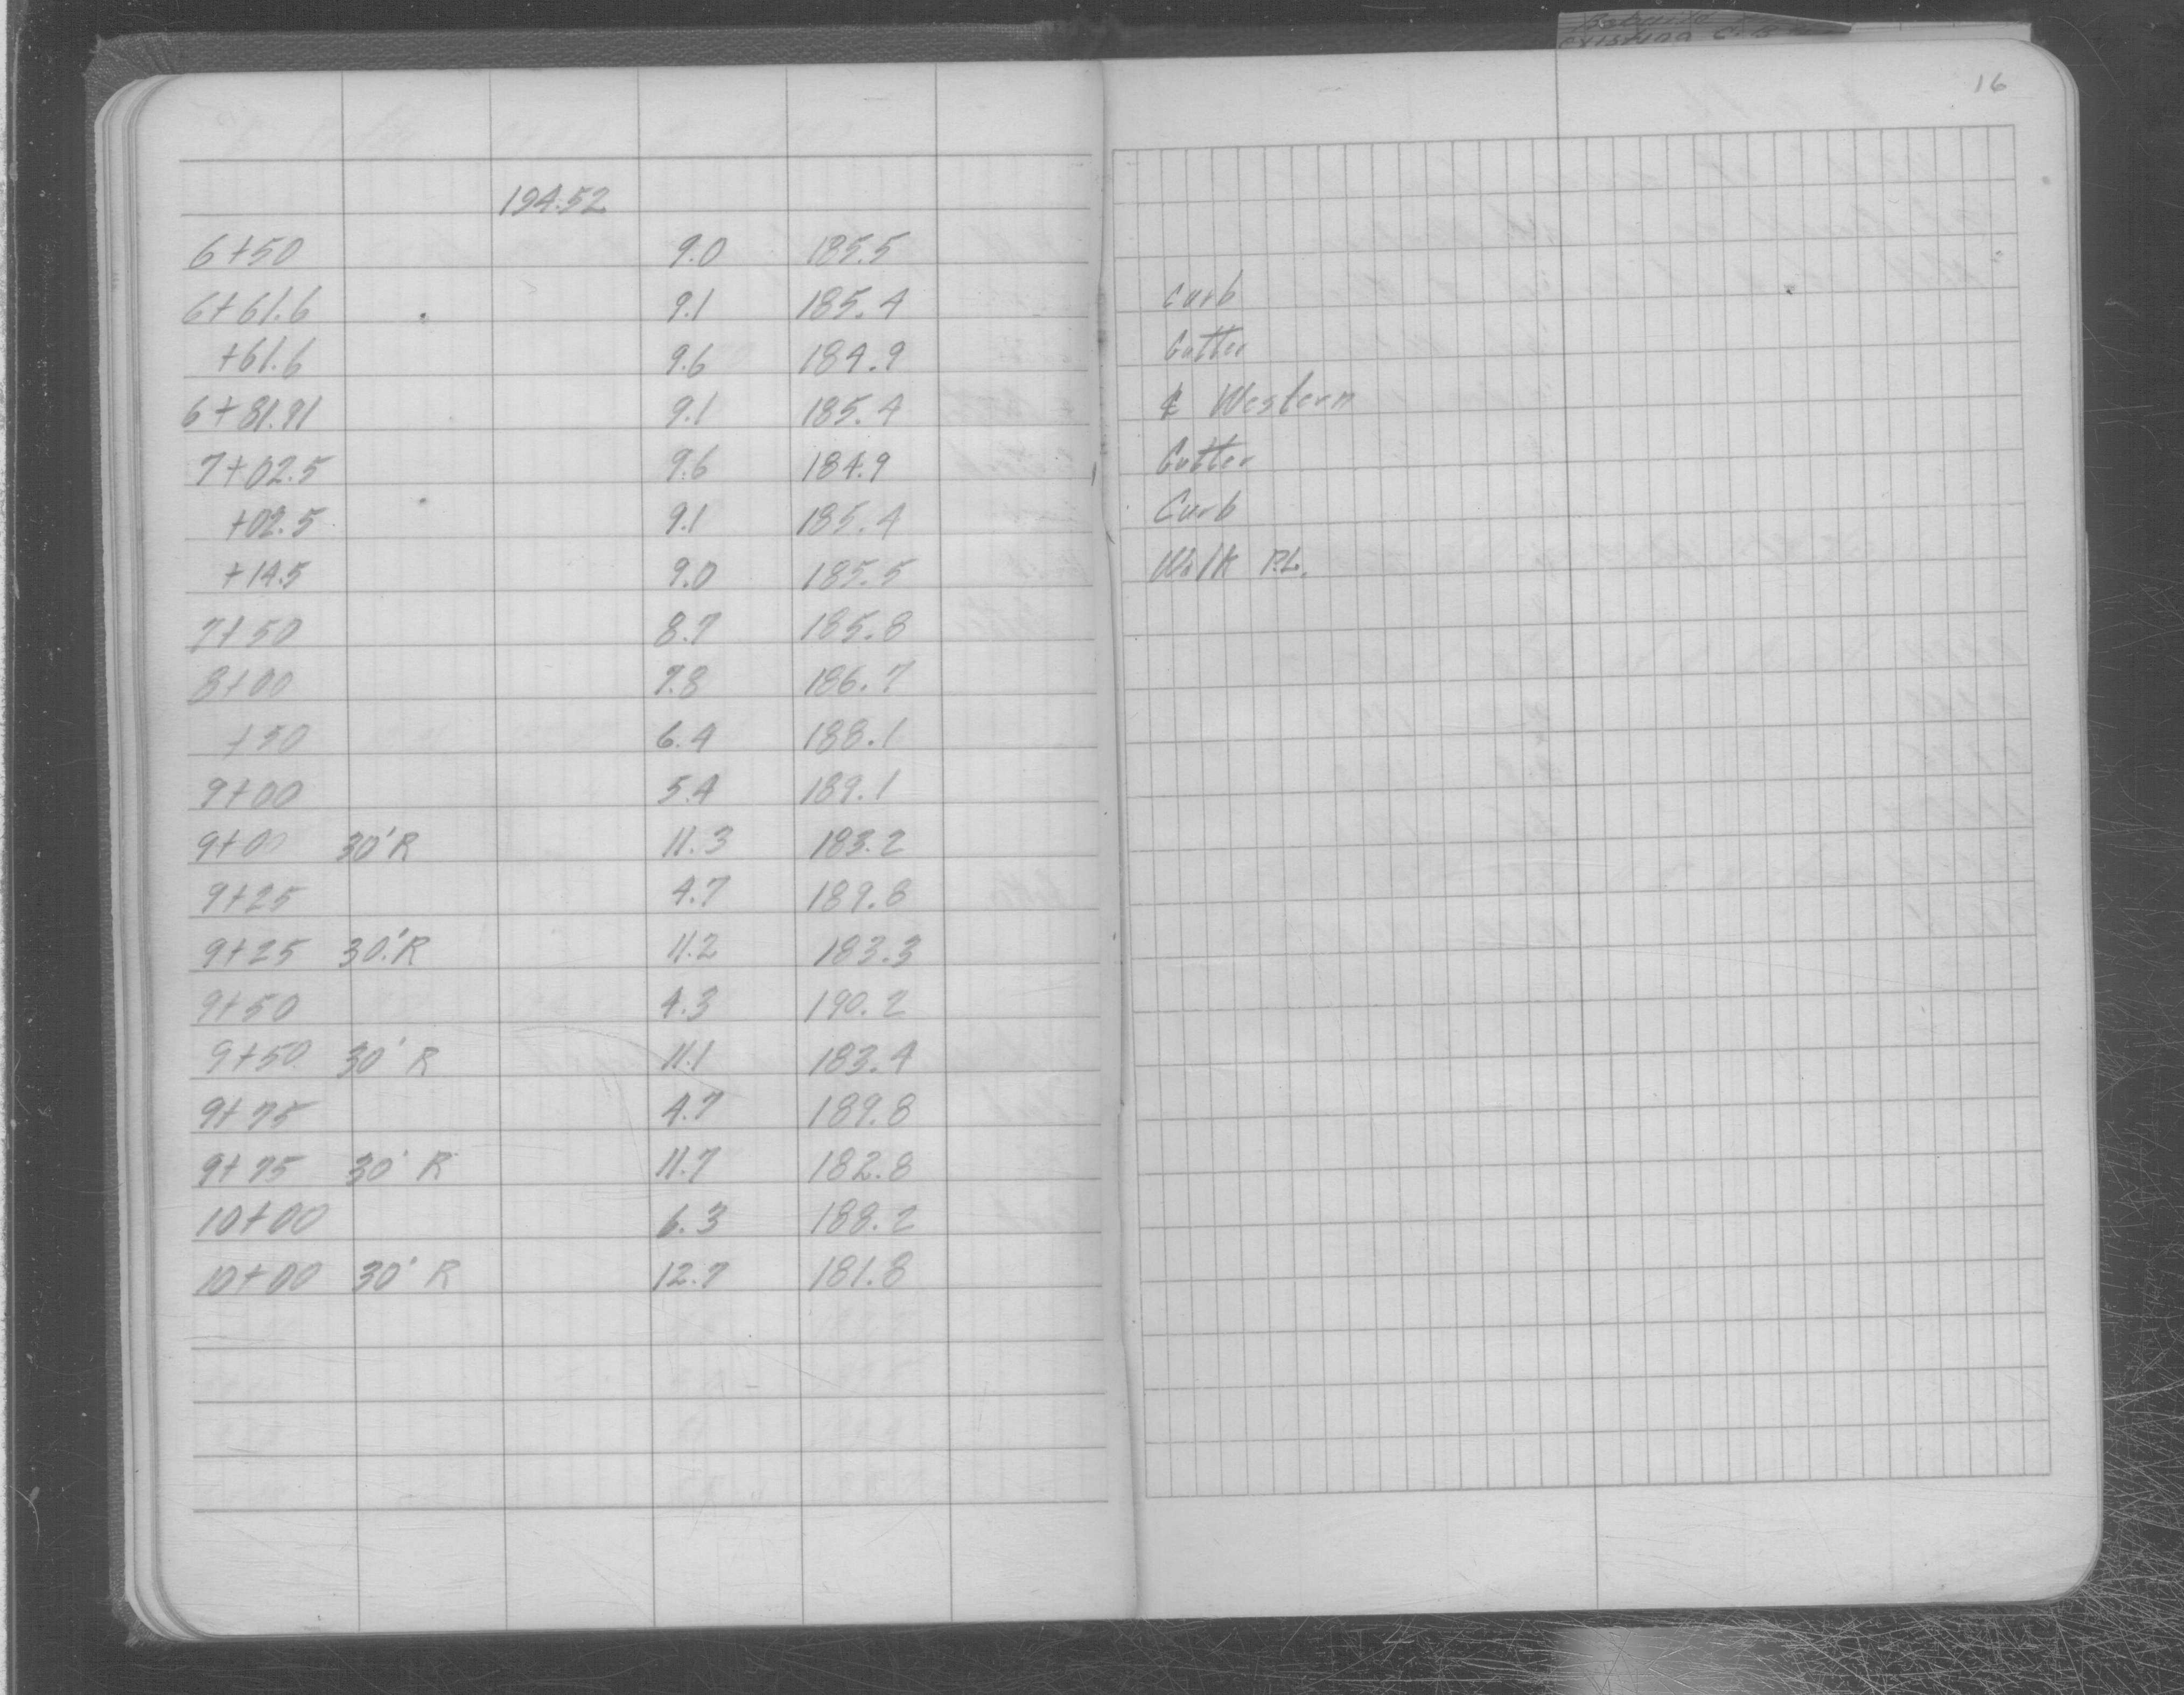 16
194.52
6+50 9.0 185.5
6+61.6 9.1 185.4 Curb
+61.6 9.6 184.9 Gutter
6+81.91 9.1 185.4 ℄ Western
7+02.5 9.6 184.9 Gutter
+02.5 9.1 185.4 Curb
+14.5 9.0 185.5 Walk P.L.
7+50 8.7 185.8
8+00 7.8 186.7
+50 6.4 188.1
9+00 5.4 189.1
9+00 30'R 11.3 183.2
9+25 4.7 189.8
9+25 30'R 11.2 183.3
9+50 4.3 190.2
9+50 30' R 11.1 183.4
9+75 4.7 189.8
9+75 30' R 11.7 182.8
10+00 6.3 188.2
10+00 30' R 12.7 181.8